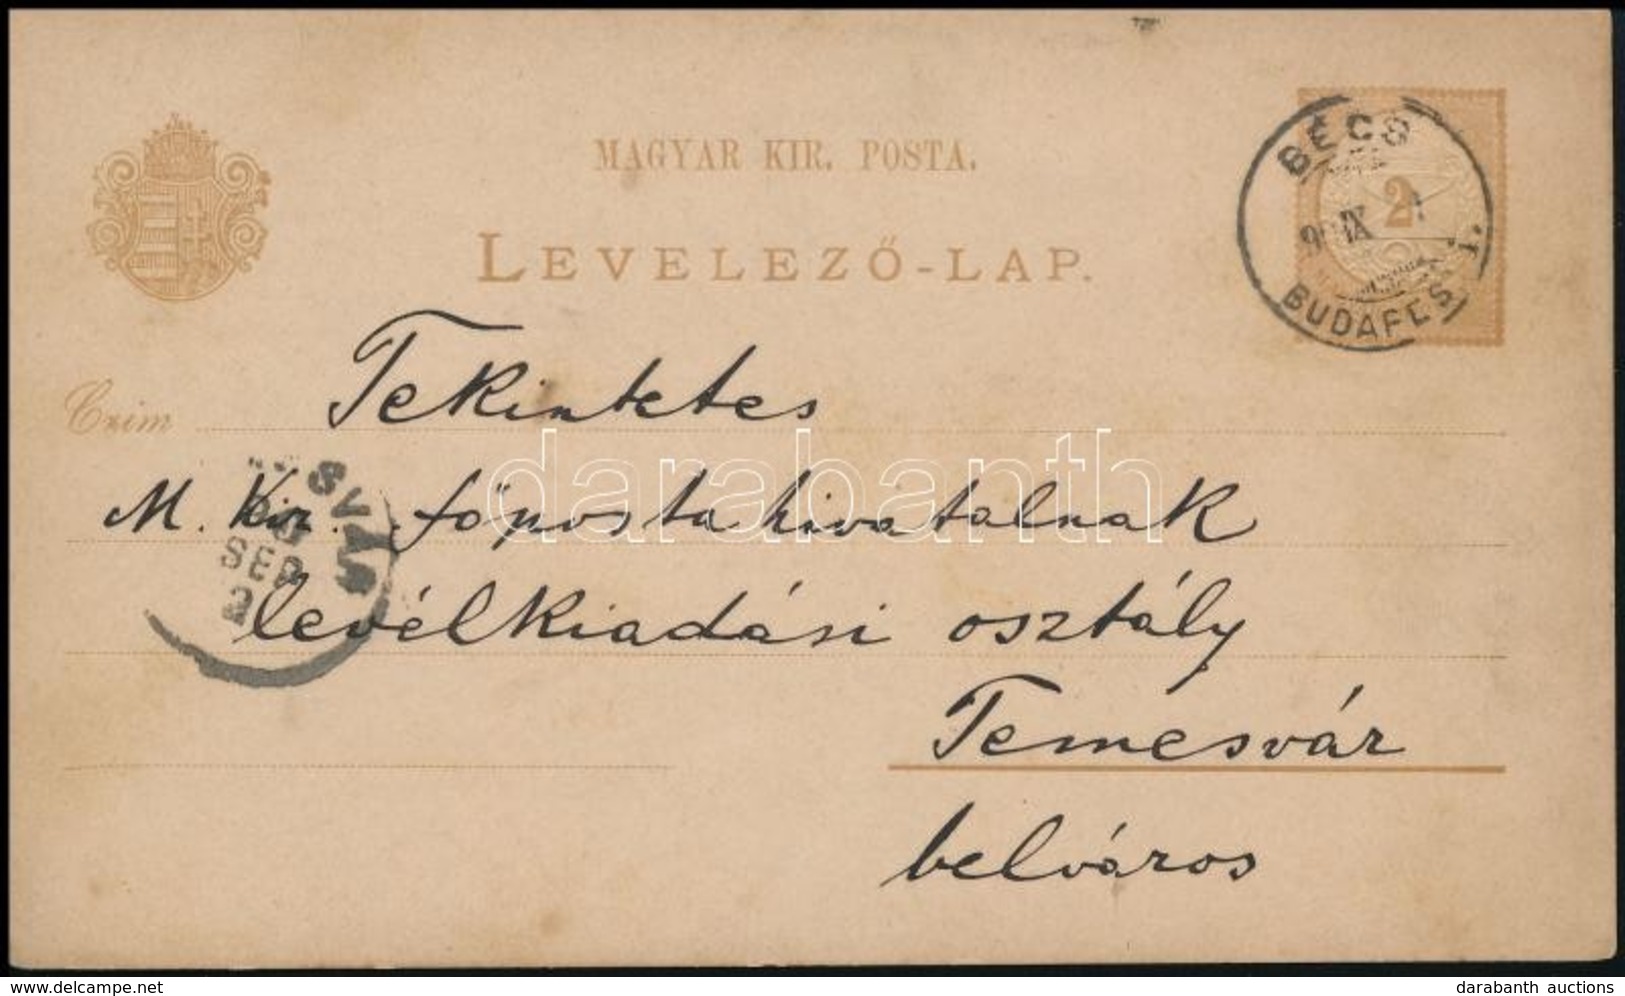 MAGYAR KIR. POSTA.
LEVELEZŐ-LAP.
2
BÉCS
90 IX
BUDAPEST I.
Czim
Tekintetes
M. Kir. főpostahivatalnak
levélkiadási osztály
Temesvár
belváros
SVÁR
SEP
2
darabanth
delcampe.net
darabanth auctions